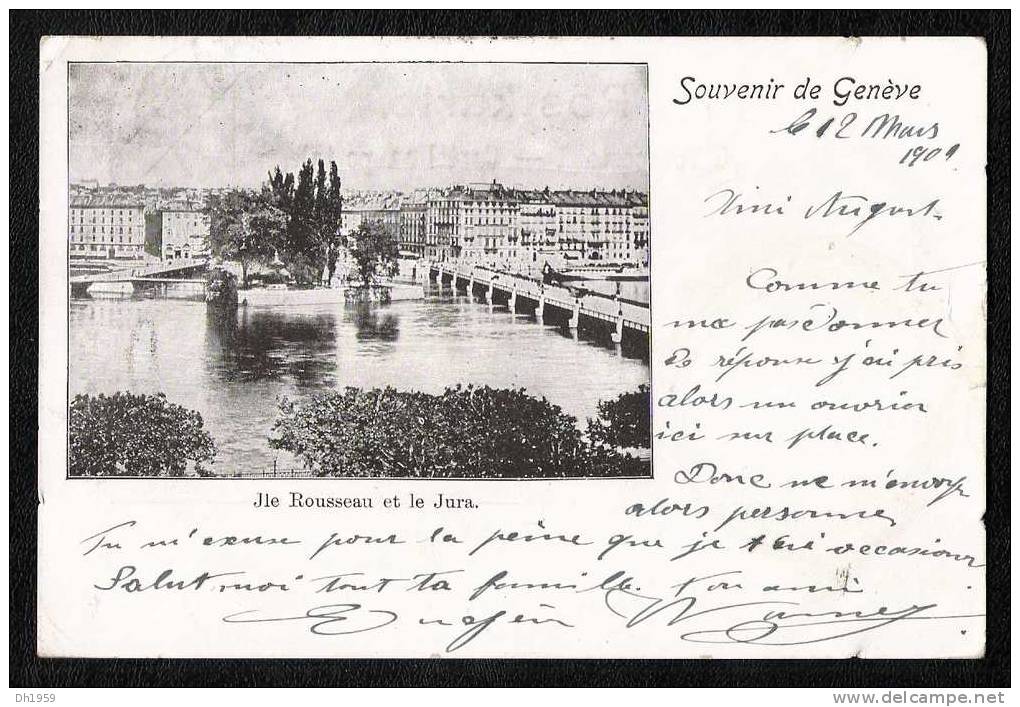 Souvenir de Genève
le 12 Mars
190
Ami August
Comme tu
ma pas donner
de réponse j'ai pris
alors un ouvrier
ici sur place.
Donc ne m'envoye
alors personne,
Jle Rousseau et le Jura.
Tu m'excuse pour la peine que je t'ai occasioner
Salut moi tout ta famille. ton ami
Eugén
Dh1959
http://www.delcampe.net